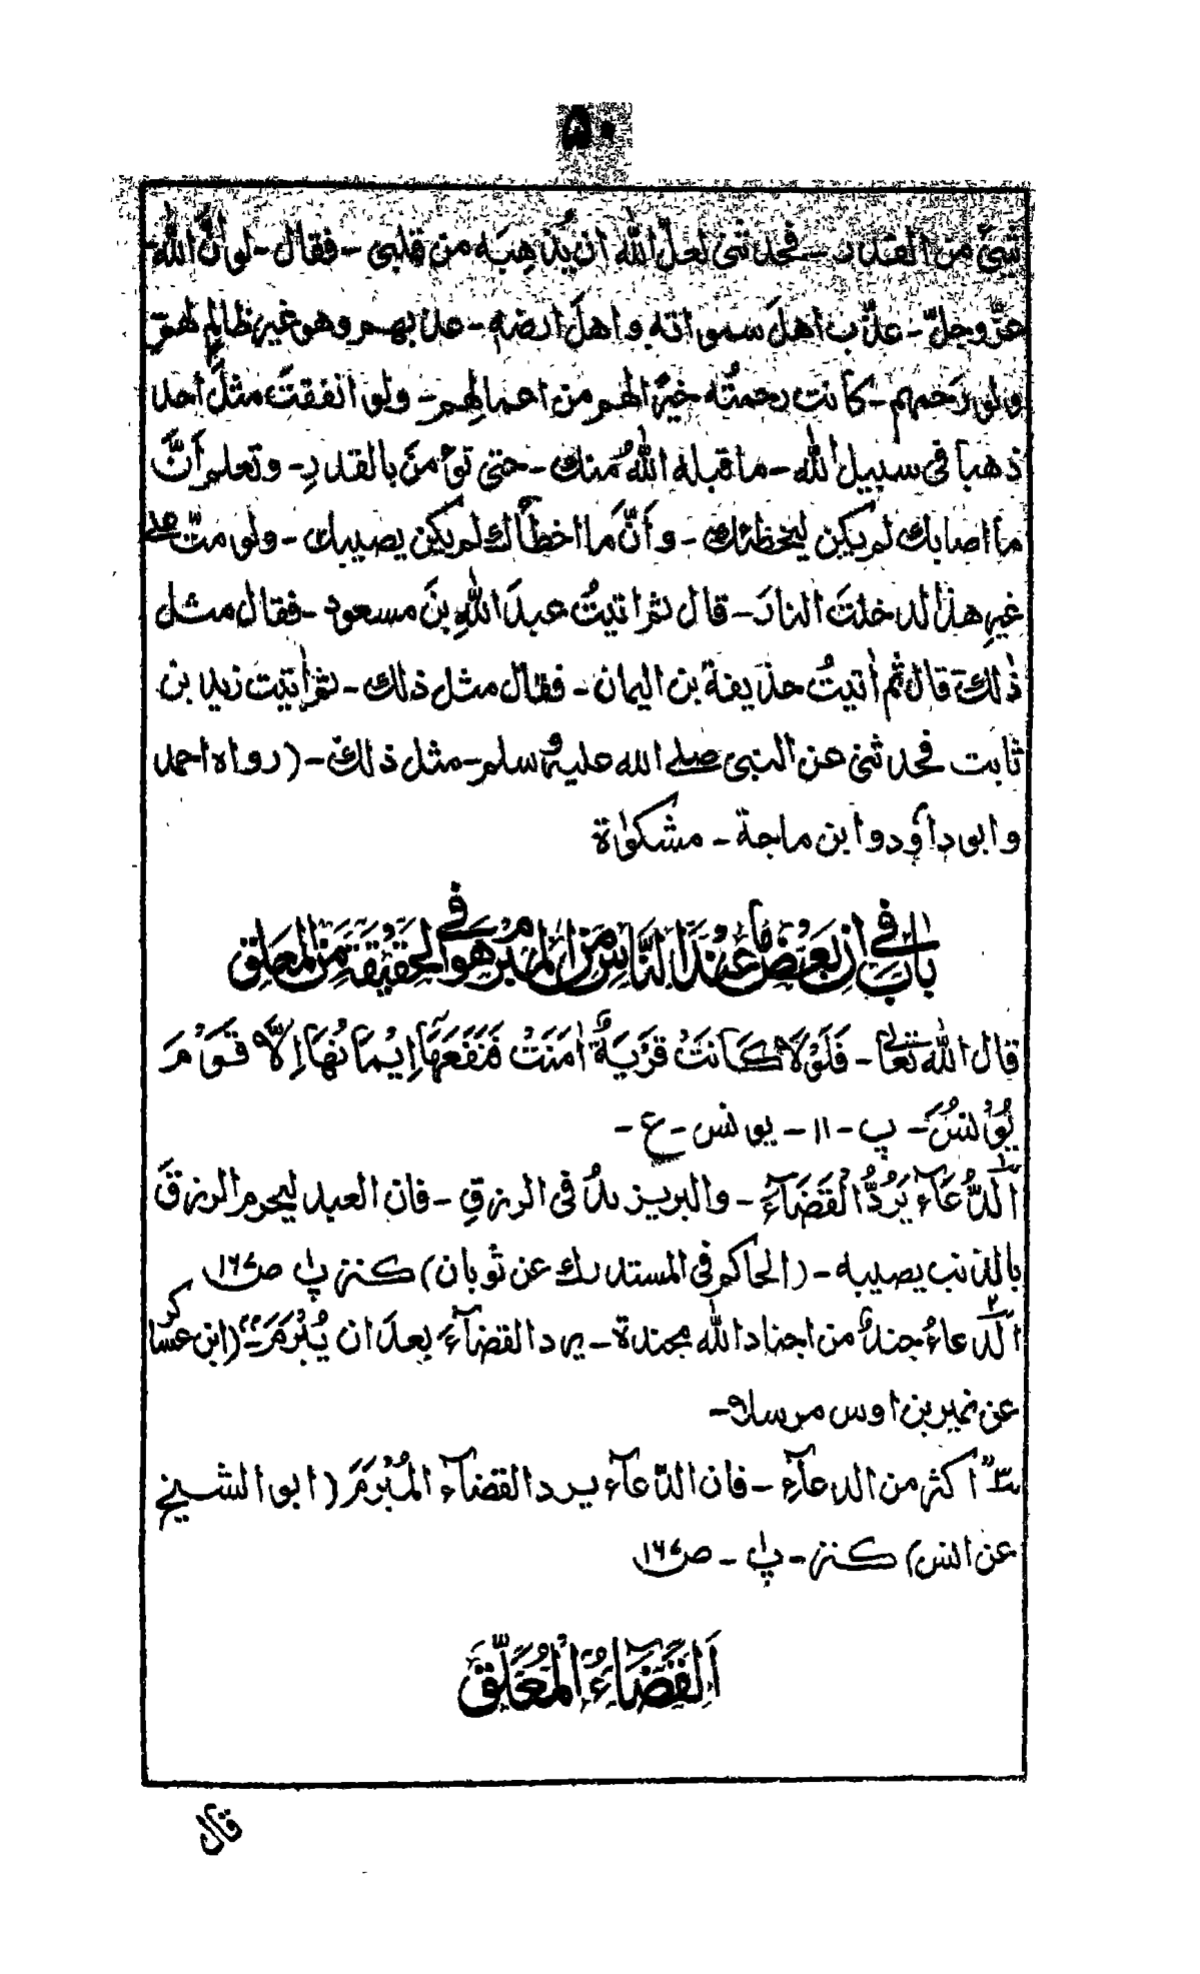 ۵۰
شئ من القدر ـ فحدثنی لعلّ الله ان یُذهِبَه من قلبی ـ فقال ـ لو أنّ الله
عزّوجلّ ـ عذّب اهلَ سمواته واهلَ ارضه ـ عذبهم وهو غیر ظالم لهم
ولو رَحمهم ـ کانت رحمتُه خیرًا لهم من اعمالِهم ـ ولو انفقتَ مثلَ اُحد
ذهبا فی سبیل الله ـ ما قبله اللهُ منك ـ حتی تؤمنَ بالقدرِ ـ وتعلم أنَّ
ما اصابك لم یکن لیخطئك ـ وأنّ ما اخطأك لم یکن یصیبك ـ ولو متّ علی
غیرِ هذا لدخلتَ النارَ ـ قال ثم اتیتُ عبدَ اللهِ بنَ مسعود ـ فقال مثل
ذٰلك قال ثم أتیتُ حذیفة بن الیمان ـ فقال مثل ذلك ـ ثم أتیت زید بن
ثابت فحدثنی عن النبی صلے الله علیه وسلم ـ مثل ذلك ـ (رواه احمد
وابوداؤد وابن ماجة ـ مشکوٰة
بَابٌ فِی اَنَّ بَعْضَ مَا عِنْدَ النَّاسِ مِنَ الْمُبْرَمِ هُوَ فِی الْحَقِیْقَةِ مِنَ الْمُعَلَّقِ
قال الله تعالٰی ـ فَلَوْلَا کَانَتْ قَرْیَةٌ اٰمَنَتْ فَنَفَعَهَا اِیْمَانُهَا اِلَّا قَوْمَ
یُوْنُسَ ـ پ ـ ۱۱ ـ یونس ـ ع ـ
۱ اَلدُّعَآءُ یَرُدُّ الْقَضَآءَ ـ والبر یزیدُ فی الرزقِ ـ فان العبد لیحرم الرزقَ
بالذنب یصیبه ـ (الحاکم فی المستدرك عن ثوبان) کنز پ۱ ص۱۶۷
۲ اَلدعاءُ جندٌ من اجناد الله مجندة ـ یرد القضآءَ بعدَ ان یُبْرَمَ ـ (ابن عساکر
عن نمیر بن اوس مرسلا ـ
۳ اکثر من الدعآء ـ فان الدعآء یرد القضآء الْمُبْرَمَ (ابو الشیخ
عن انس) کنز ـ پ۱ ـ ص۱۶۷
اَلْقَضَآءُ الْمُعَلَّقُ
قال